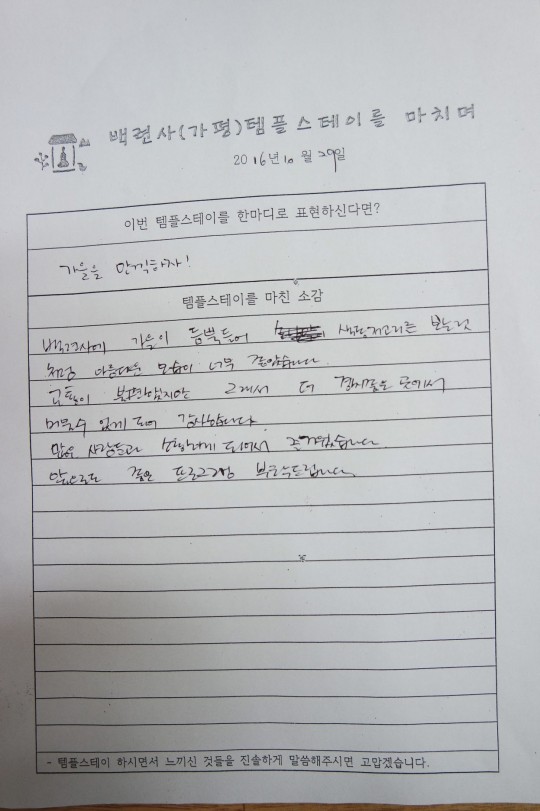 백련사(가평)템플스테이를 마치며
2016년 10월 29일
이번 템플스테이를 한마디로 표현하신다면?
가을을 만끽하자!
템플스테이를 마친 소감
백련사에 가을이 듬뿍들어 색동저고리를 보는것
처럼 아름다운 모습이 너무 좋았습니다.
교통이 불편했지만 그래서 더 경치좋은 곳에서
머물수 있게 되어 감사합니다.
많은 사람들과 함께 되어서 즐거웠습니다.
앞으로도 좋은 프로그램 부탁드립니다.
- 템플스테이 하시면서 느끼신 것들을 진솔하게 말씀해주시면 고맙겠습니다.